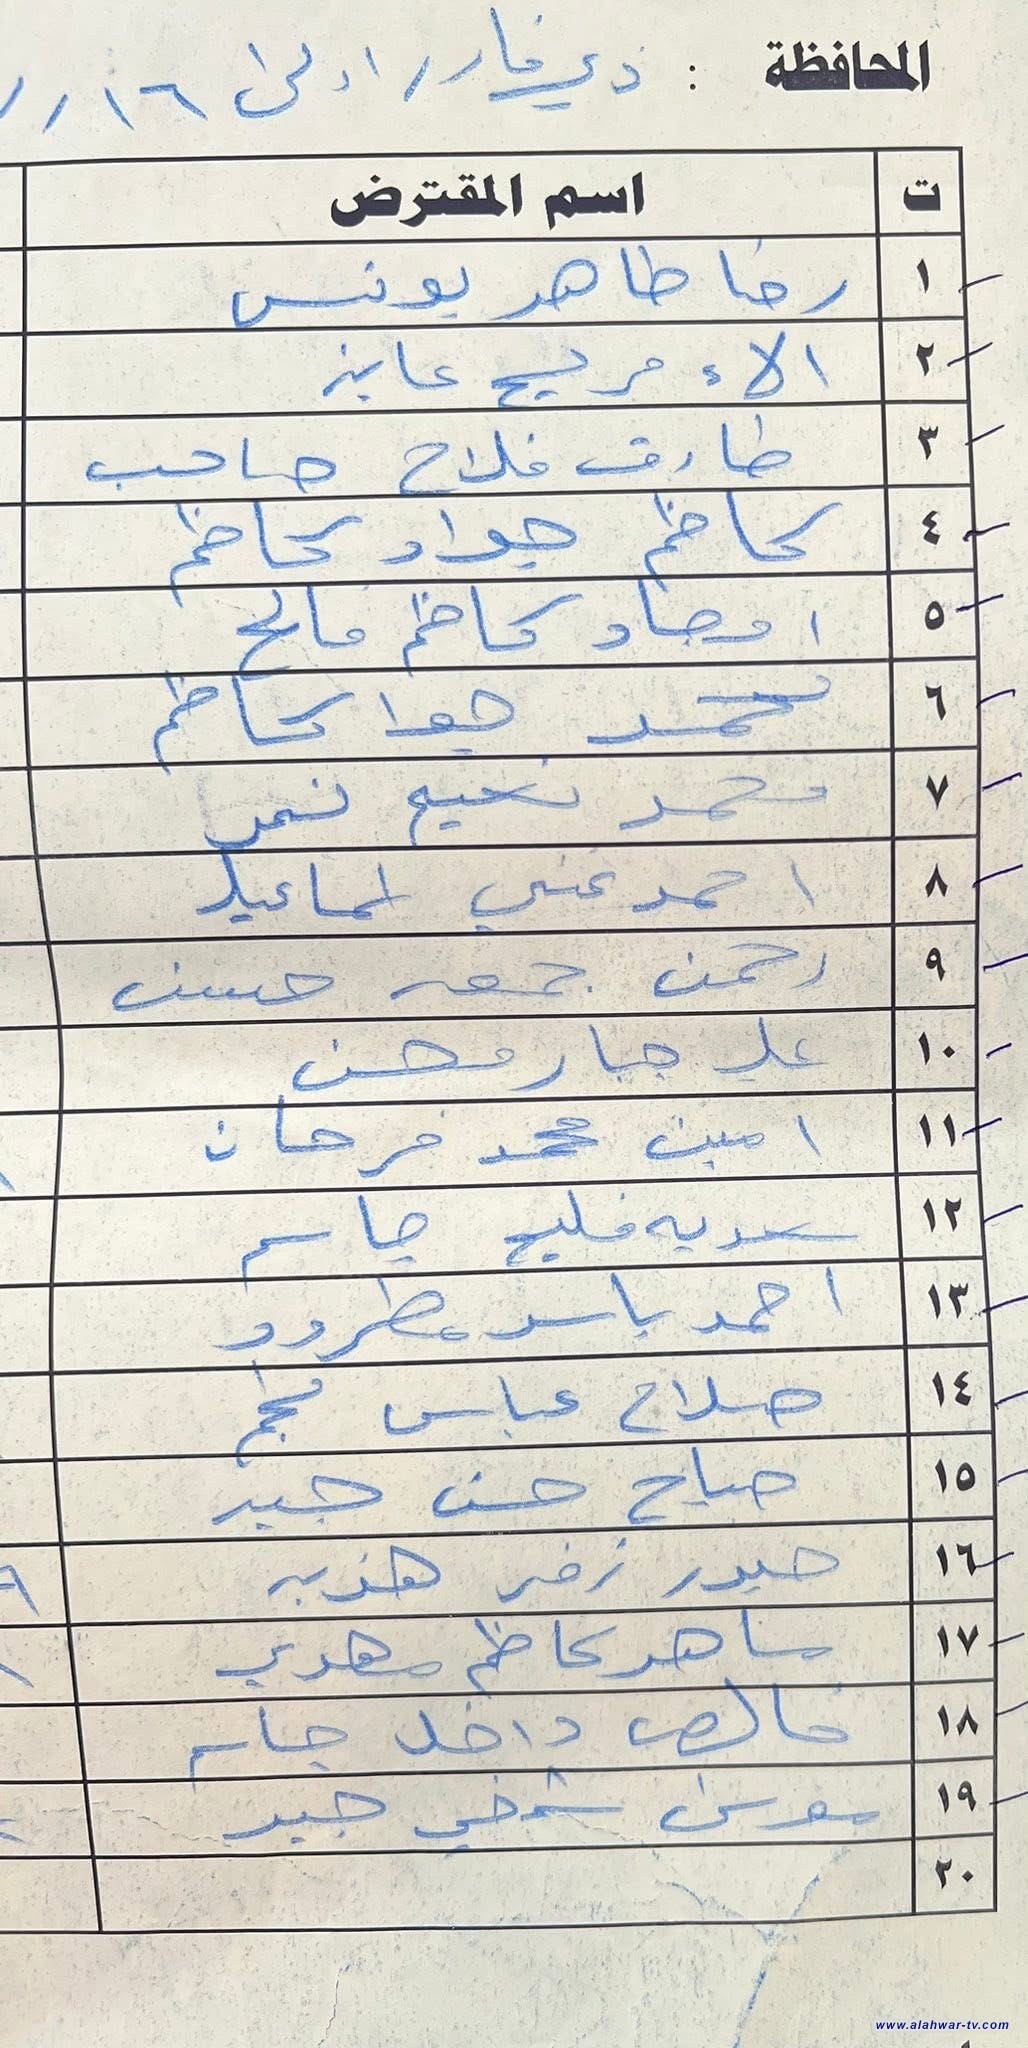 المحافظة : ذي قار / اولى / ١٦ / /
ت اسم المقترض
١ رضا طاهر يونس
٢ الاء مريح عايز
٣ طارق فلاح صاحب
٤ كاظم جواد كاظم
٥ امجاد كاظم فالح
٦ محمد جواد كاظم
٧ محمد نعيم نمر
٨ احمد غني اسماعيل
٩ رحمن جمعه حسن
١٠ علي جبار محسن
١١ امين محمد فرحان
١٢ سعديه فليح جاسم
١٣ احمد ياسر مطرود
١٤ صلاح عباس نجم
١٥ صباح حسن جبر
١٦ حيدر زغير هذبه
١٧ ساهر كاظم مهدي
١٨ خالص داخل جاسم
١٩ موسى شخي جبر
٢٠
www.alahwar-tv.com